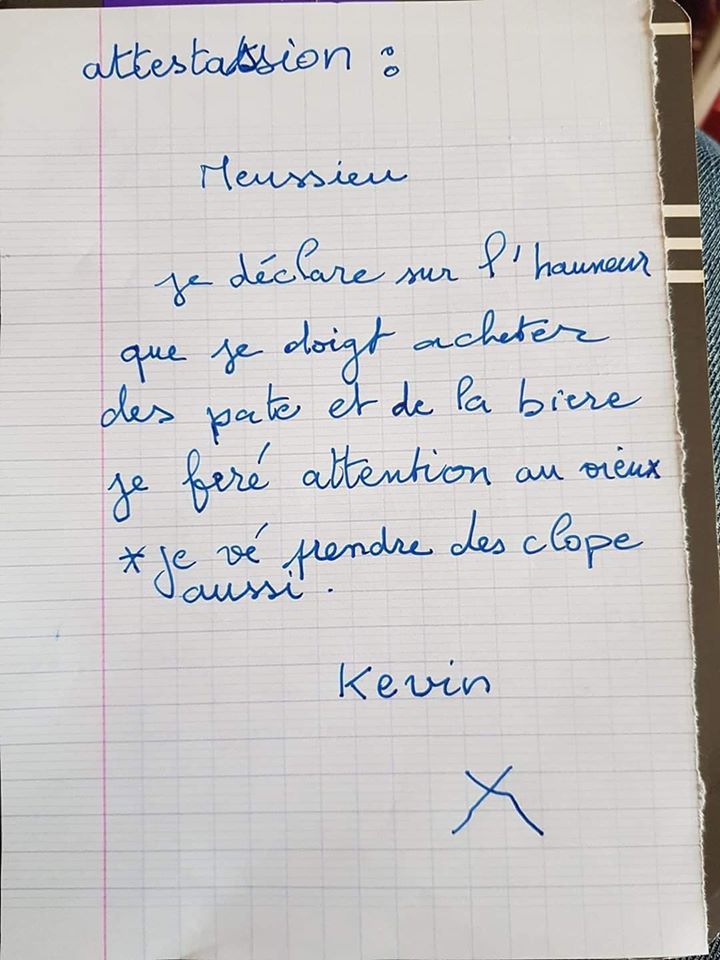 attestassion :
Meussieu
je déclare sur l'hauneur
que je doigt acheter
des pate et de la biere
je feré attention au vieux
* je vé prendre des clope
aussi.
Kevin
X